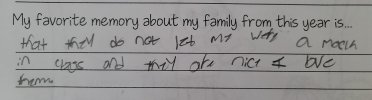 My favorite memory about my family from this year is...
that they do not let my a
in class and they are nice & love
them